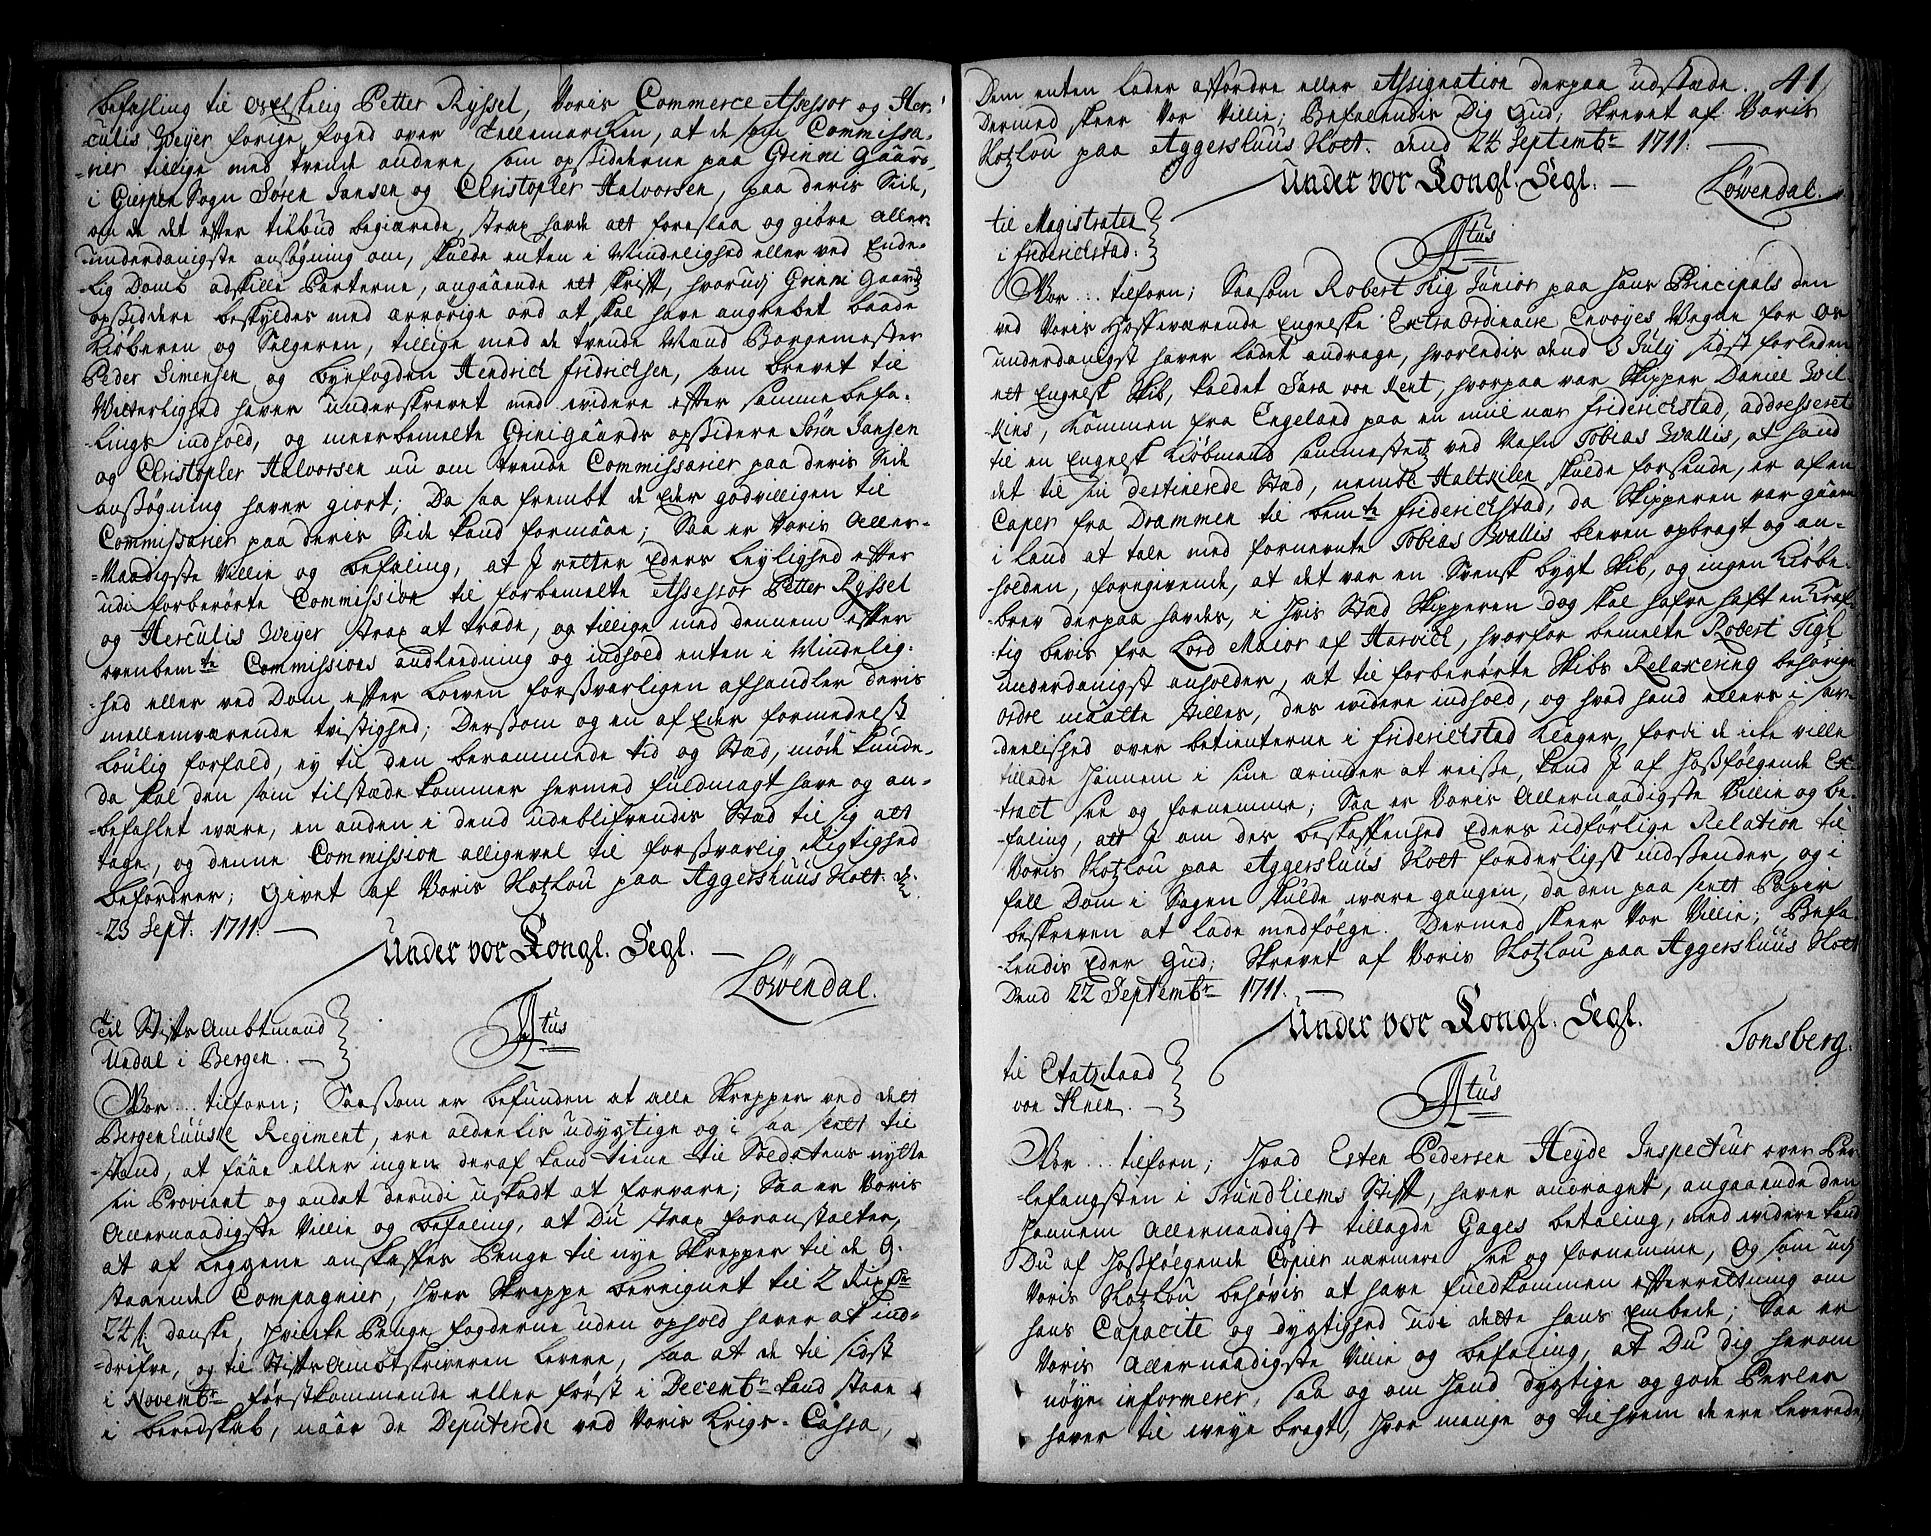 befahling til os Elskelig Petter Ryssel, Voris Commerce Assessor og Her-
culis Weyer forige foged over Tellemarcken, at de som Commissa-
-rier tillige med trende andere, som opsidderne paa Grini Gaard
i Gierpen Sogn Søren Jansen og Christopher Halvorsen, paa deris Side,
om de det efter tilbud begiærede, strax hafde at foreslaa og giøre aller-
underdanigste ansøgning om, skulde enten i Mindelighed eller ved Ende-
-lig Domb adskille Parterne, angaaende et skrift, hvorudj Grini Gaards
opsiddere beskyldes med ærrørige ord at skal have angrebet baade
Kiøberen og Selgeren, tillige med de trende Mænd Borgemester
Peder Simensen, og byefogden Hendrich fridrichsen, som brevet til
Vitterlighed haver underskrevet med videre efter samme befa-
-lings indhold, og meerbemelte Grini gaards opsidere Søren Jansen
og Christopher Halvorsen nu om trende Commissarier paa deris Side
ansøgning haver giort; Da saa frembt de Eder godvilligen til
Commissarier paa deris Side kand formaae; Saa er Voris Aller-
-Naadigste Villie og befaling, at I retter Eders leylighed efter
udi forberørte Commission til forbemelte Assessor Petter Ryssel
og Herculis Weyer strax at træde, og tillige med dennem efter
ovenbemte Commissions andleedning og indhold enten i Mindelig-
-hed eller ved Dom efter Lowen forsvarligen afhandler deris
mellemværende tvistighed; Dersom og en af Eder formedelst
Loulig forfald, ey til den berammede tid og Stæd, møde kunde,
da skal den som tilstæde kommer hermed fuldmagt have og an-
-befahlet være, en anden i dend udeblifvendis Stæd til sig at
tage, og denne Commission alligevel til forsvarlig Rigtighed
befordrer; Givet af Voris Slotzlou paa Aggershuus Slott d.
23 Sept. 1711.
Under vor Kongl. Segl.
Løwendal.
Til Stifts Ambtmand
Undal i Bergen.
Atus
Vor... tilforn; Saasom er befunden at alle Skrepper ved det
Bergenhuuske Regiment, ere aldeelis udygtige og i saa slett til
-stand, at faae eller ingen deraf kand tiene til Soldatens nytte
sin Proviant og andet derudi uskadt at forvare; Saa er Voris
Allernaadigste Villie og befaling, at Du strax foranstalter,
at af Leggene anskaffes Penge til nye Skrepper til de 9.
staaende Compagnier, hver Skreppe bereignet til 2 Rixort
24 s. danske, hvilcke Penge fogderne uden ophold haver at ind-
-drifve, og til Stifts Ambtskriveren levere, saa at de til sidst
i Novembr førstkommende eller først i Decembr kand staae
i beredskab, naar de Deputerede ved Voris Krigs-Cassa,
41
Dem enten lader affordre eller Assignation derpaa udstæde.
Dermed skeer Vor Villie; Befalendis Dig Gud; Skrevet af Voris
Slotzlou paa Aggershuus Slott. dend 24 Septembr 1711.
Under vor Kongl. Segl.
Løwendal.
til Magistraten
i friderichstad.
Atus
Vor... tilforn; Saasom Robert Tigh Junior paa hans Principals den
ved Voris Hoffværende Engelske Extra Ordinaire Envoyes Vegne for os
underdanigst haver ladet andrage, hvorledis dend 3 July sidst forleden
et Engelsk Skib, kaldet Sara von Kent, hvorpaa var Skipper Daniel Wil-
kins, kommen fra Engeland paa en miil nær friderichstad, addresseret
til en Engelsk Kiøbmand sammestetz ved Nafn Tobias Wallis, at hand
det til sin destinerede Stæd, nembl. Haltkilen skulde forsende, er af en
Caper fra Drammen til bemte friderichstad, da Skipperen var gaaen
i land at tale med fornevnte Tobias Wallis bleven opbragt og an-
holden, foregivende, at det var en Svensk bygt Skib, og ingen Kiøbe-
brev derpaa hafdes, i hvis Stæd Skipperen dog skal hafve haft en Kraf-
-tig bevis fra Lord Maior af Harvich, hvorfor bemelte Robert Tigh
underdanigst anholder, at til forberørte Skibs Relaxering behørige
ordre maatte stilles, des videre indhold, og hvad hand ellers i sær-
deelished over betienterne i friderichstad klager, fordi de icke ville
tillade hannem i sine ærinder at reise, kand I af hosfølgende Ex-
-tract see og fornemme; Saa er Voris Allernaadigste Villie og be-
-faling, at I om des beskaffenhed Eders udførlige Relation til
Voris Slotzlou paa Aggershuus Slott forderligst indsender, og i
fall Dom i Sagen skulde være gangen, da den paa slett Papir
beskreven at lade medfølge. Dermed skeer Vor Villie; Befa-
lendis Eder Gud; Skrevet af Voris Slotzlou paa Aggershuus Slott
Dend 22 Septembr 1711.
Under vor Kongl. Segl.
Tonsberg.
til Etatzraad
von Ahnen.
Atus
Vor... tilforn; Hvad Esten Pedersen Heyde Inspectur over Per-
-lefangsten i Trundhiems Stift, haver andraget, angaaende den
hannem Allernaadigst tillagde Gages betaling, med videre kand
Du af hosfølgende Copier nærmere see og fornemme, Og som udj
Voris Slotzlou behøvis at have fuldkommen efterretning om
hans Capacite og dygtighed udi dette hans Embede; Saa er
Voris Allernaadigste Villie og befaling, at Du dig herom
nøye informerer, saa og om hand dygtige og gode Perler
haver til veye bragt, hvor mange og til hvem de ere leverede,